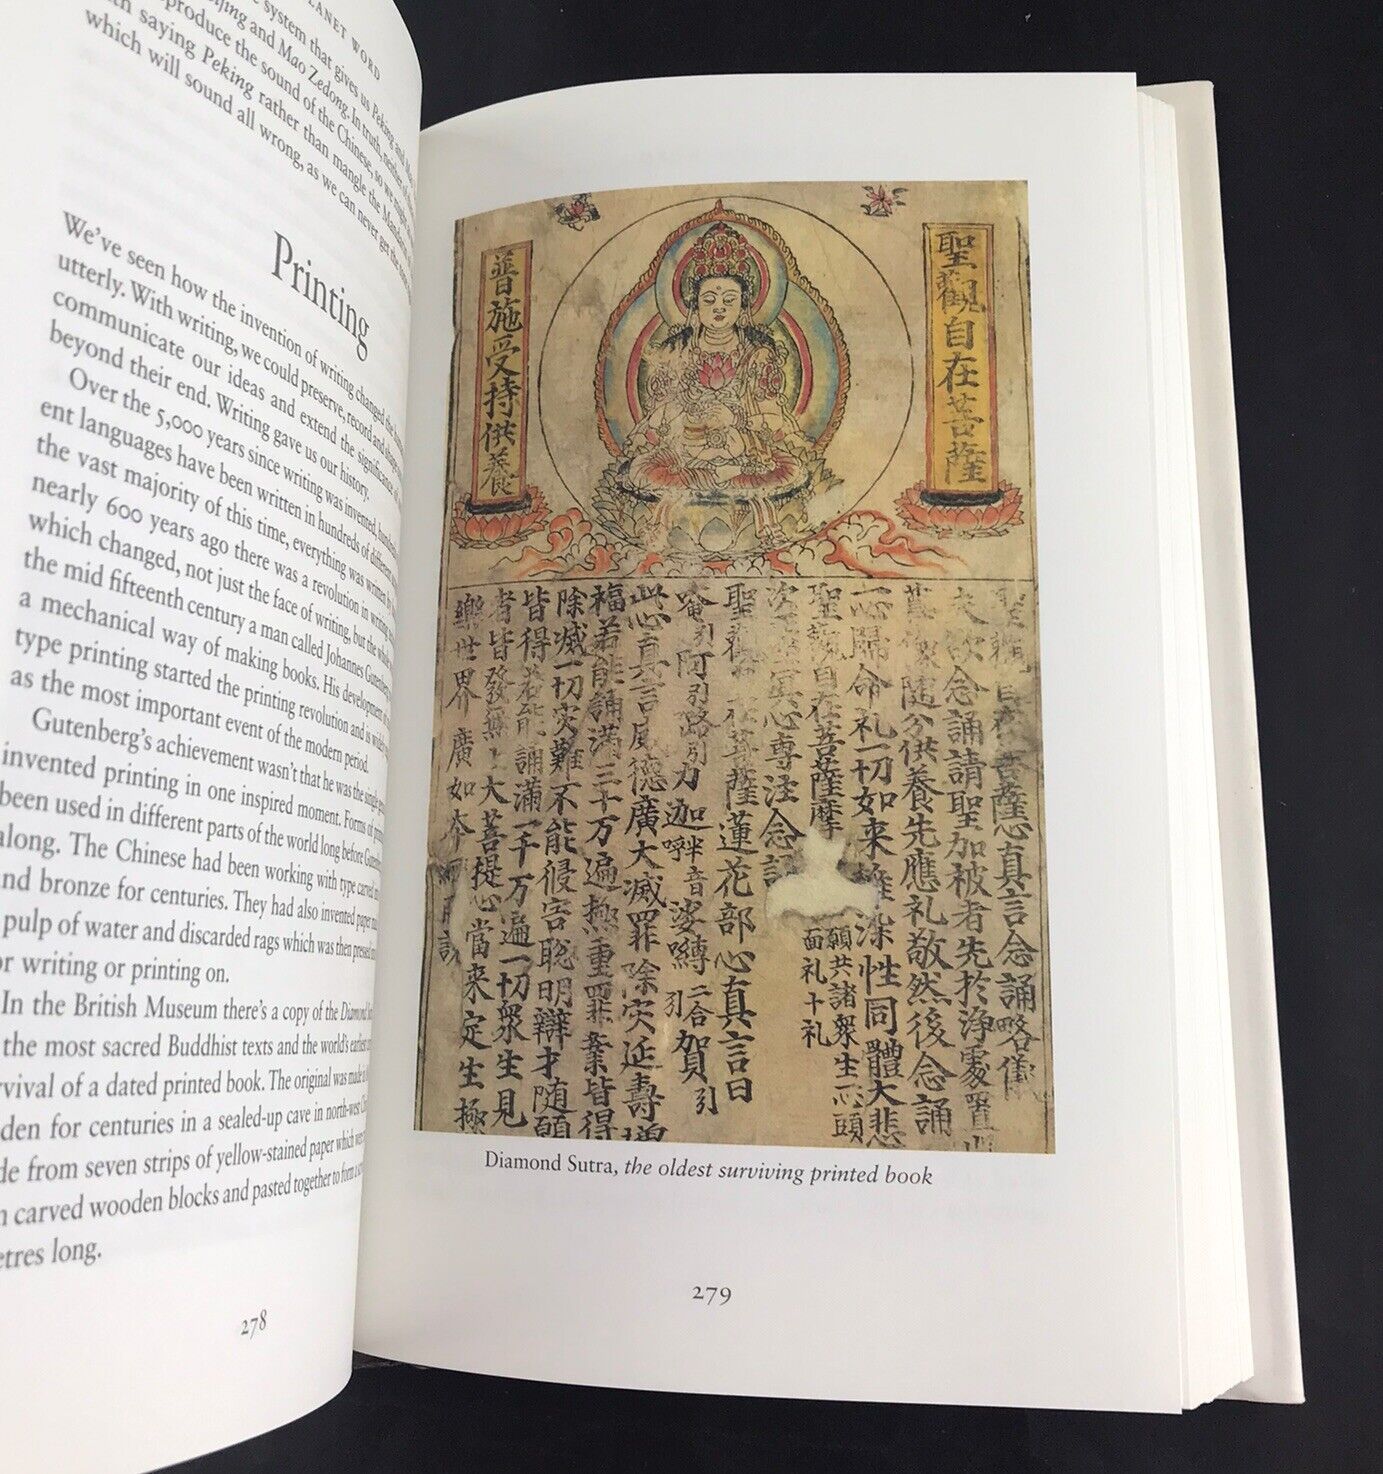 PLANET WORD
system that gives us Peking and
Beijing and Mao Zedong. In truth, neither of
produce the sound of the Chinese, so we might
saying Peking rather than mangle the Mandarin
which will sound all wrong, as we can never get the
Printing
We've seen how the invention of writing changed the
utterly. With writing, we could preserve, record and
communicate our ideas and extend the significance of
beyond their end. Writing gave us our history.
Over the 5,000 years since writing was invented,
ent languages have been written in hundreds of different
the vast majority of this time, everything was written by
nearly 600 years ago there was a revolution in writing
which changed, not just the face of writing, but the
the mid fifteenth century a man called Johannes Gutenberg
a mechanical way of making books. His development of
type printing started the printing revolution and is
as the most important event of the modern period.
Gutenberg's achievement wasn't that he was the single
invented printing in one inspired moment. Forms of
been used in different parts of the world long before
along. The Chinese had been working with type carved
and bronze for centuries. They had also invented paper
pulp of water and discarded rags which was then pressed
or writing or printing on.
In the British Museum there's a copy of the Diamond
the most sacred Buddhist texts and the world's earliest
rvival of a dated printed book. The original was made
dden for centuries in a sealed-up cave in north-west
de from seven strips of yellow-stained paper which
carved wooden blocks and pasted together to form a
etres long.
278
聖觀自在菩薩
普施受持供養
聖觀自在菩薩心真言念誦略儀
夫欲念誦請聖加被者先於淨處置此
尊像隨分供養先應礼敬然後念誦
一心歸命礼一切如來離染性同體大悲
聖觀自在菩薩摩
願共諸衆生一心頭
面礼十礼
冥心專注念誦
聖觀自在菩薩蓮花部心真言曰
唵引阿引路引力迦半音呼娑嚩二合賀引
此心真言威德廣大滅罪除灾延壽增
福若能誦滿三十万遍極重罪業皆得
除滅一切灾難不能侵害聡明辯才随願
皆得若能誦滿一千万遍一切衆生見
者皆發無上大菩提心當來定生極
樂世界廣如本
說
Diamond Sutra, the oldest surviving printed book
279